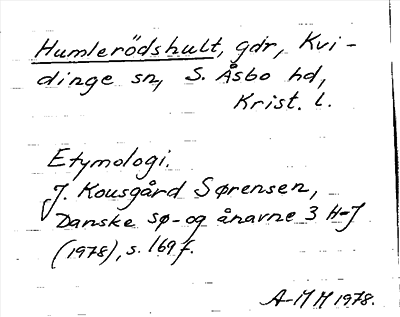 Humlerödshult, gdr, Kvi-
dinge sn, S. Åsbo hd,
Krist. l.
Etymologi.
J. Kousgård Sørensen,
Danske sø- og ånavne 3 H-J
(1978), s. 169 f.
A-MM 1978.